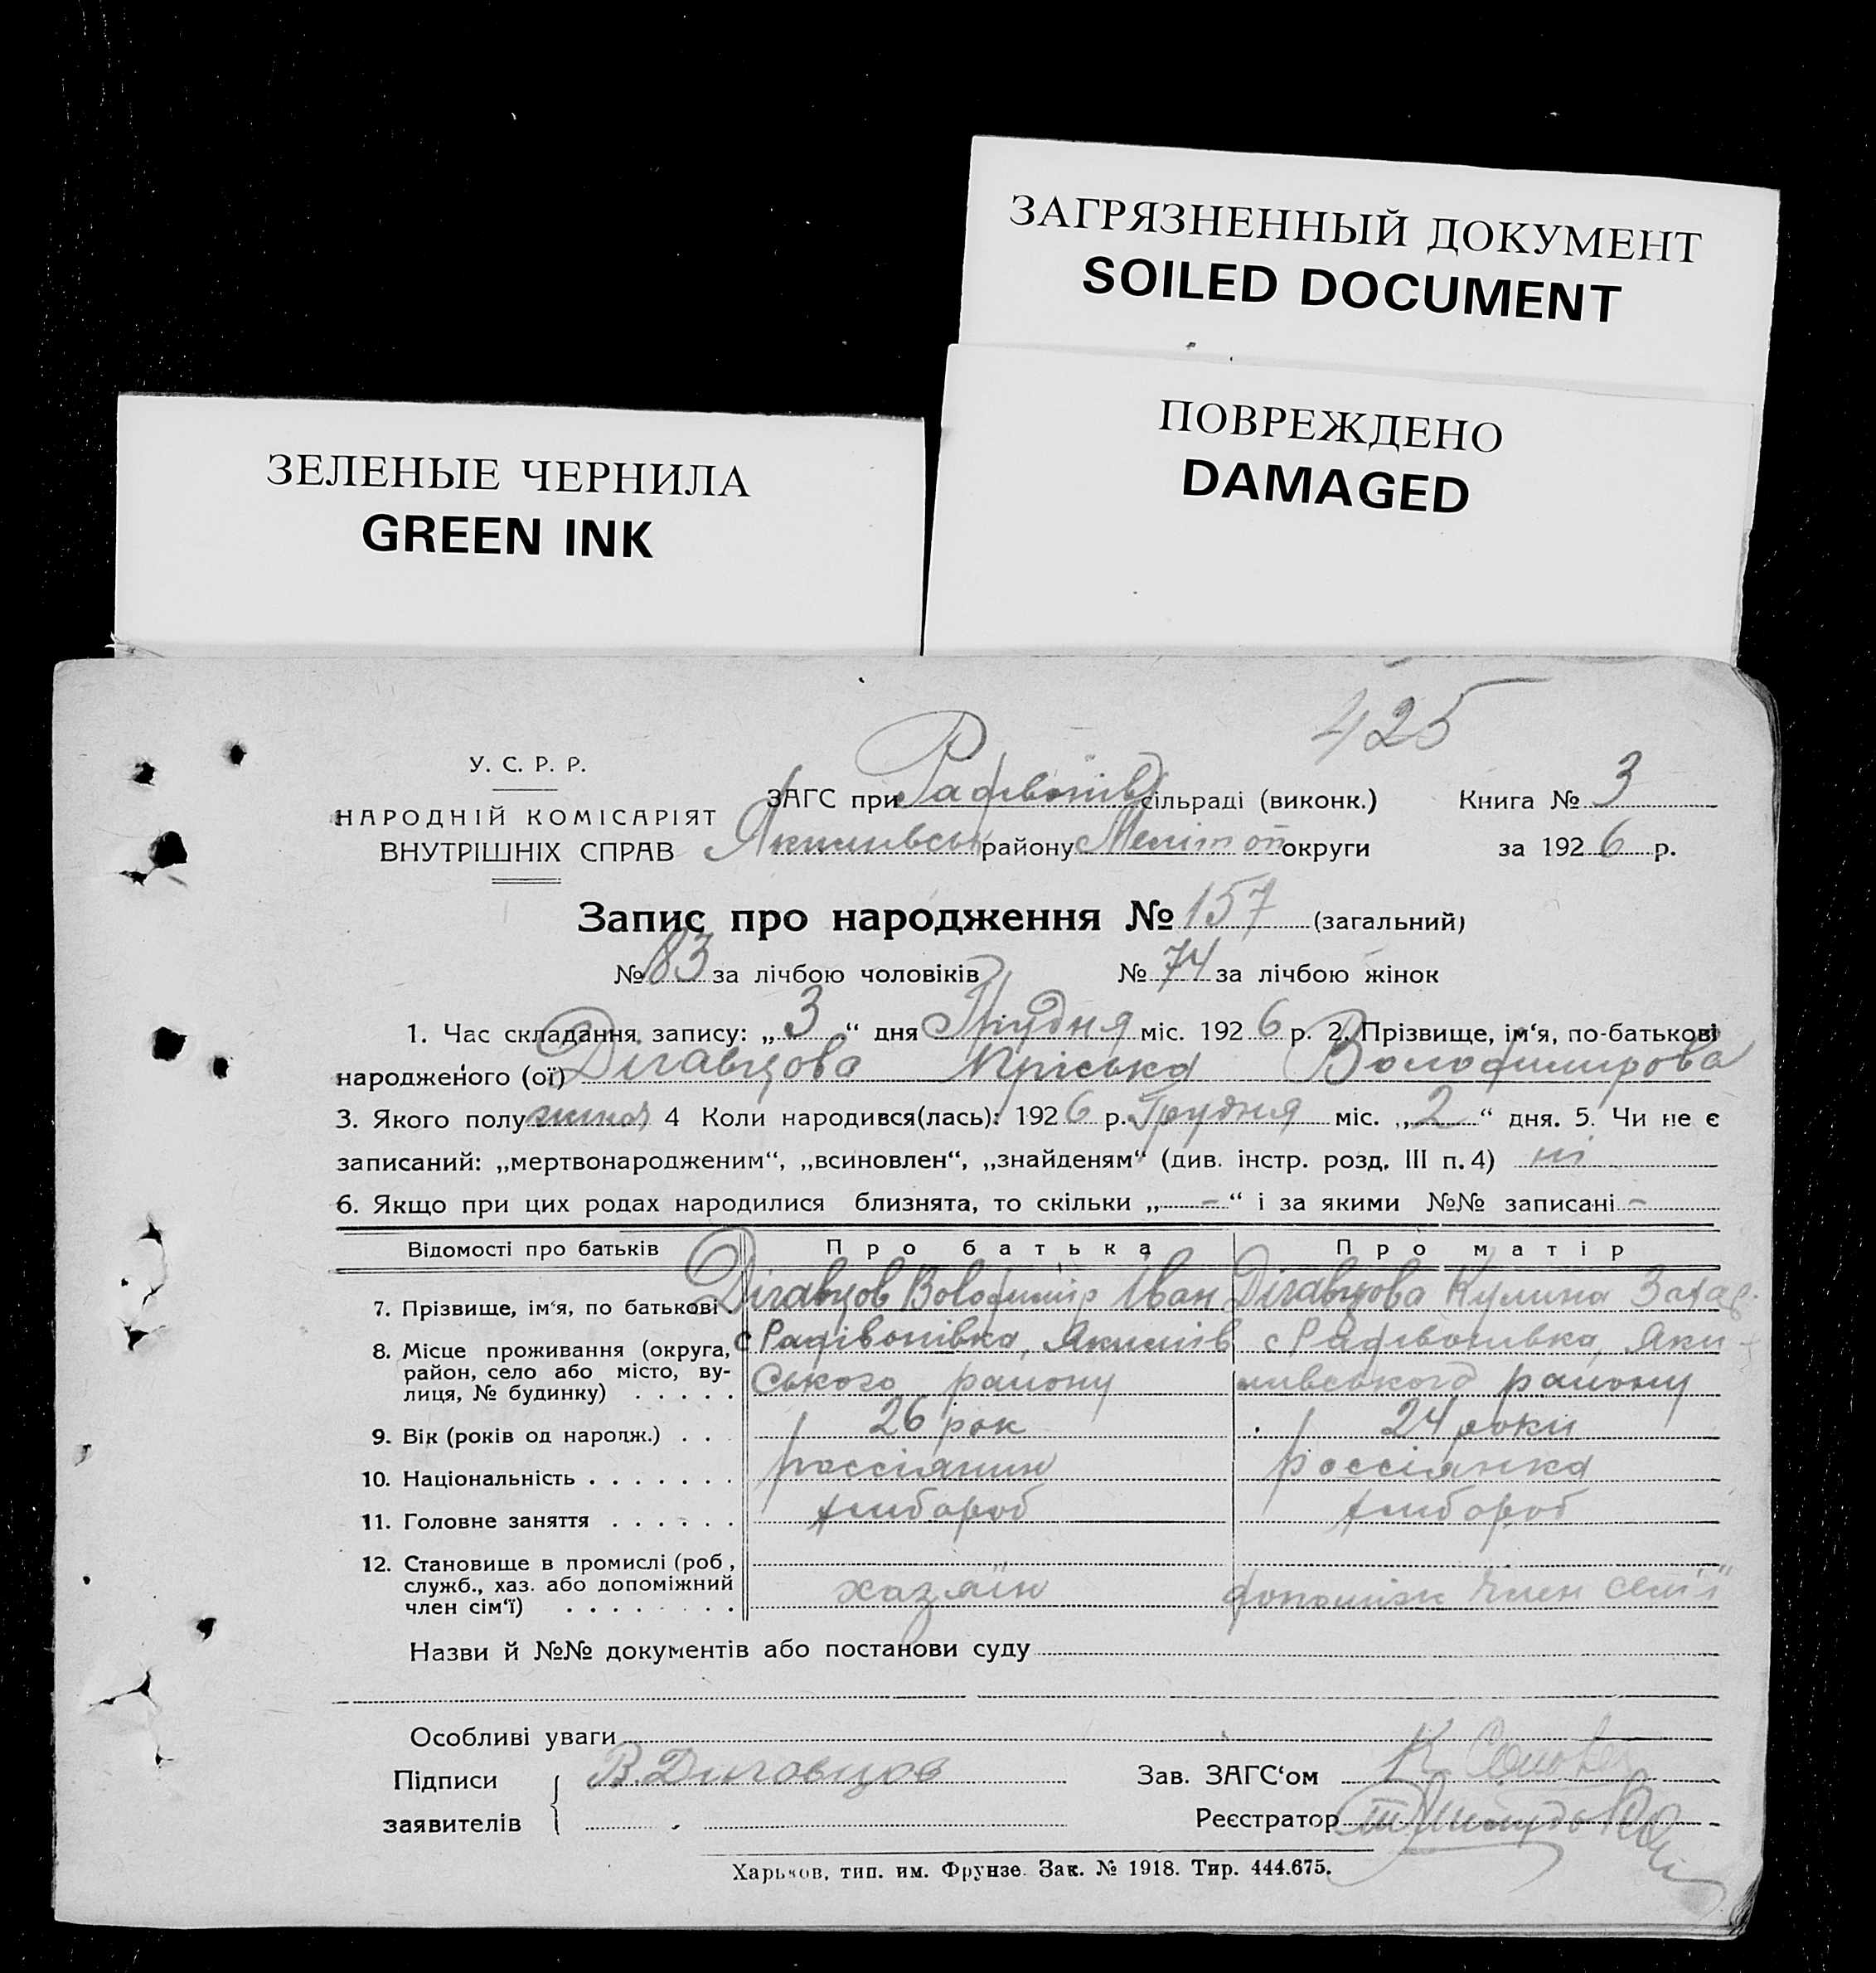 ЗАГРЯЗНЕННЫЙ ДОКУМЕНТ
SOILED DOCUMENT
ПОВРЕЖДЕНО
DAMAGED
ЗЕЛЕНЫЕ ЧЕРНИЛА
GREEN INK
425
У. С. Р. Р.
НАРОДНІЙ КОМІСАРІЯТ
ВНУТРІШНІХ СПРАВ
ЗАГС при Радівонів сільраді (виконк.) Книга № 3
Якимівськ району Мелітоп округи за 1926 р.
Запис про народження № 157 (загальний)
№ 83 за лічбою чоловіків № 74 за лічбою жінок
1. Час складання запису: „3“ дня Грудня міс. 1926 р. 2. Прізвище, ім‘я, по-батькові
народженого (ої) Дігавцова Пріська Володимирова
3. Якого полу жиноч 4 Коли народився(лась): 1926 р. Грудня міс. „2“ дня. 5. Чи не є
записаний: „мертвонародженим“, „всиновлен“, „знайденям“ (див. інстр. розд. III п. 4) ні
6. Якщо при цих родах народилися близнята, то скільки „-“ і за якими №№ записані -
Відомості про батьків Про батька Про матір
7. Прізвище, ім‘я, по батькові Дігавцов Володимір Іван Дігавцова Кулина Захар.
8. Місце проживання (округа, с Радівонівка, Якимів с Радівонівка, Яки-
район, село або місто, ву-
лиця, № будинку) . . . . . ського району мивського району
9. Вік (років од народж.) . . 26 рок 24 роки
10. Національність . . . . . . . россіянин россіянка
11. Головне заняття . . . . . . хлибороб хлибороб
12. Становище в промислі (роб.,
служб., хаз. або допоміжний
член сім‘ї) . . . . . . . . хазяїн допоміж член семї
Назви й №№ документів або постанови суду
Особливі уваги
Підписи В. Диговцов Зав. ЗАГС‘ом К
заявителів Реєстратор
Харьков, тип. им. Фрунзе. Зак. № 1918. Тир. 444.675.